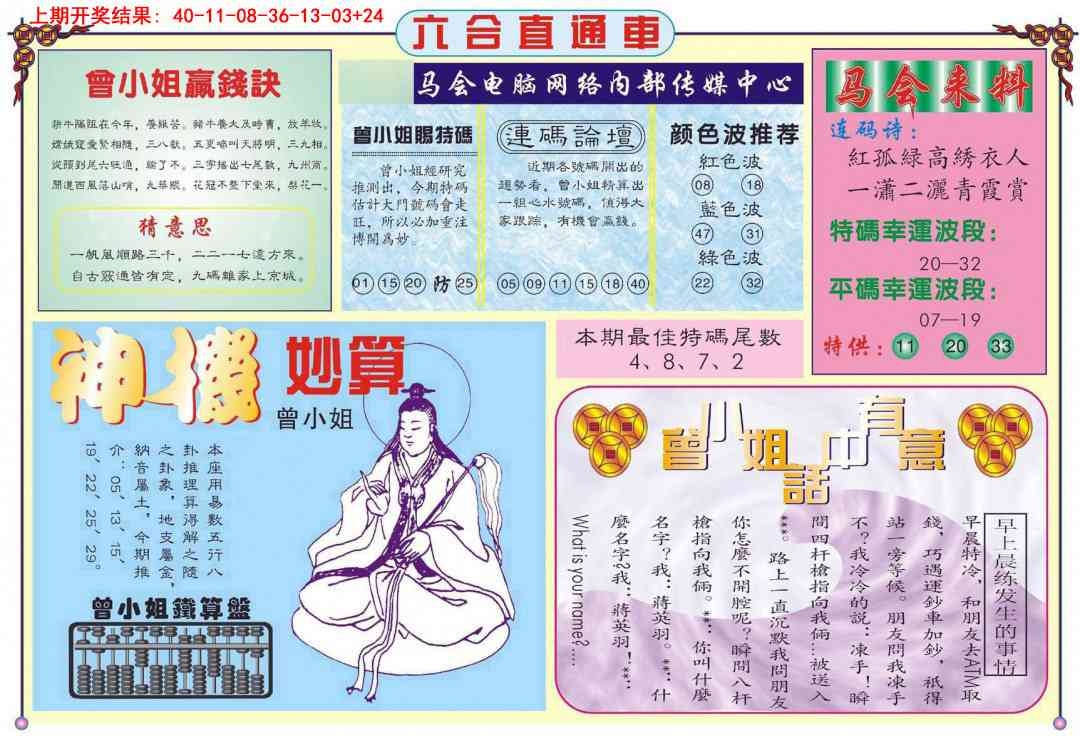 上期开奖结果：40-11-08-36-13-03+24
六合直通車
曾小姐贏錢訣
猜意思
一帆風順路三千，二二一七遠方來。
自古窮通皆有定，九碼離家上京城。
马会电脑网络内部传媒中心
曾小姐賜特碼
曾小姐經研究
推測出，今期特碼
估計大門號碼會走
旺，所以必加重注
博開為妙。
01 15 20 防 25
連碼論壇
近期各號碼開出的
趨勢看，曾小姐精算出
一組心水號碼，值得大
家跟踪，有機會贏錢。
05 09 11 15 18 40
颜色波推荐
紅色波
08 18
藍色波
47 31
綠色波
22 32
马会来料
连码诗：
紅孤緑高綉衣人
一瀟二灑青霞賞
特碼幸運波段：
20—32
平碼幸運波段：
07—19
特供：11 20 33
本期最佳特碼尾數
4、8、7、2
神機妙算
曾小姐
本座用易數五行八
卦推理算得解之隨
之卦象，地支屬金，
納音屬土，今期推
介：05、13、15、
19、22、25、29。
曾小姐鐵算盤
曾小姐話中有意
早上晨练发生的事情
早晨特冷，和朋友去ATM取
錢，巧遇運鈔車加鈔，衹得
站一旁等候。朋友問我凍手
不？我冷冷的説：凍手！瞬
間四杆槍指向我倆…被送入
***。路上一直沉默我問朋友
你怎麼不開腔呢？瞬間八杆
槍指向我倆。**：你叫什麼
名字？我：蔣英羽。**：什
麼名字？我：蔣英羽！**：
What is your name？....